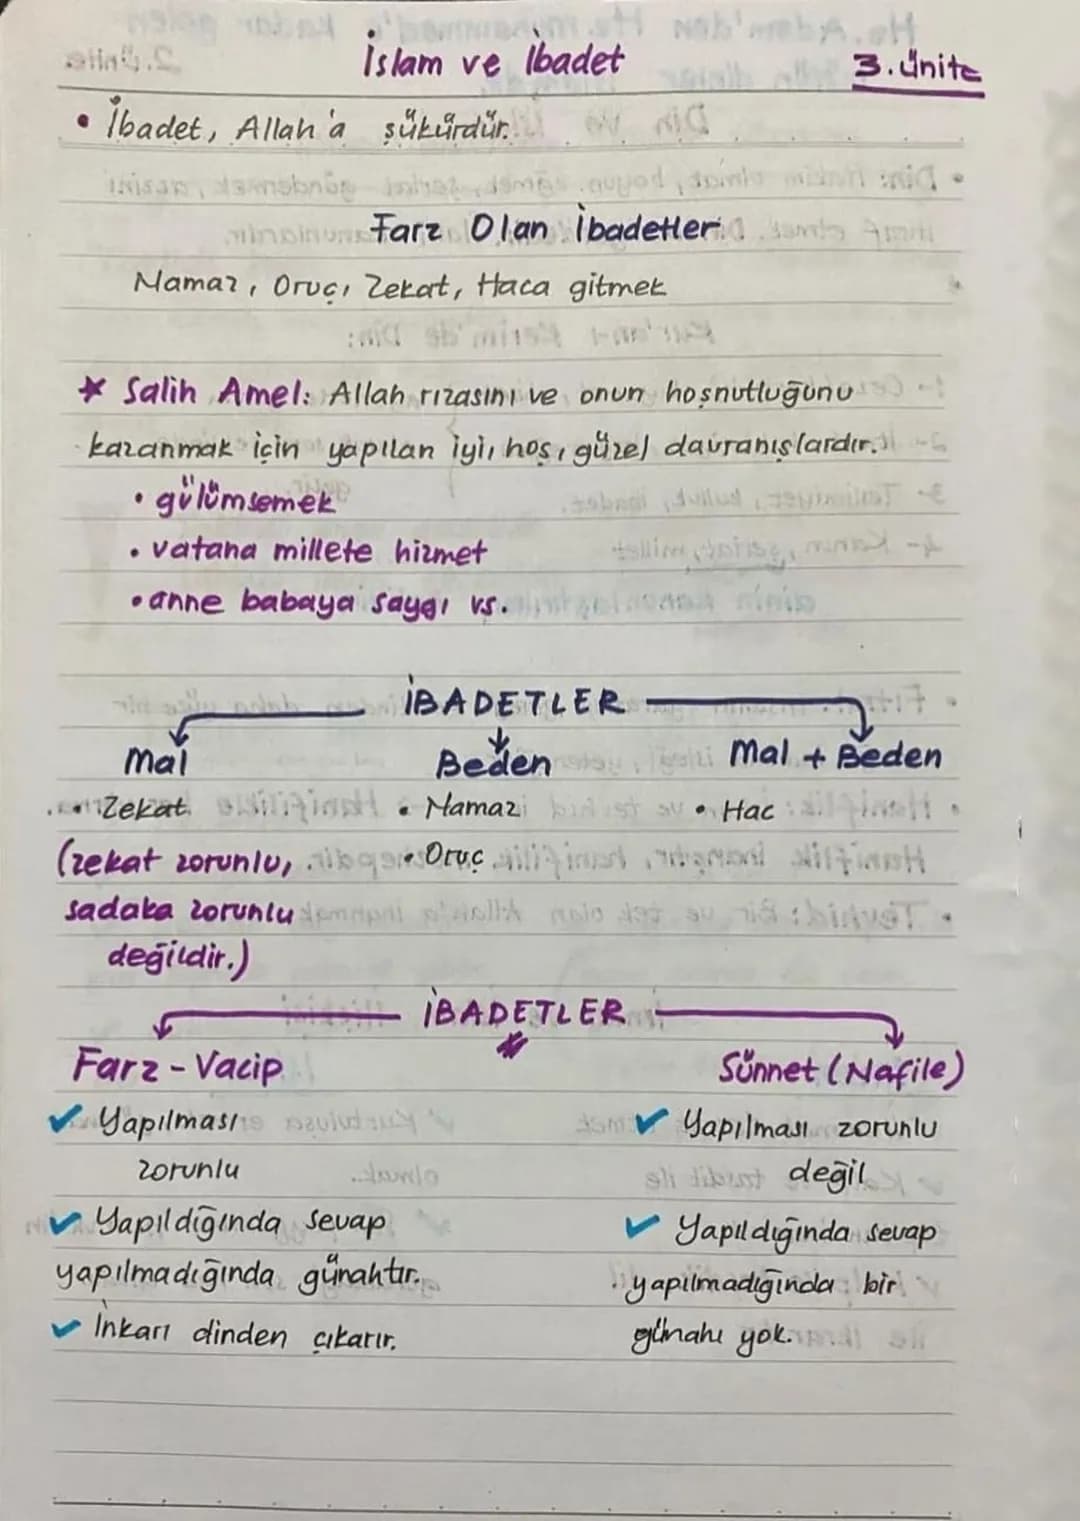 İslam ve İbadet
3. ünite
• İbadet, Allah'a şükürdür.
Farz Olan İbadetler
Namaz, Oruç, Zekat, Haca gitmek
* Salih Amel: Allah rızasını ve onun hoşnutluğunu
kazanmak için yapılan iyi, hoş, güzel davranışlardır.
• gülümsemek
• vatana millete hizmet
• anne babaya saygı vs.
İBADETLER
Mal Beden Mal + Beden
• Zekat • Namaz • Hac
(zekat zorunlu, • Oruç
sadaka zorunlu
değildir.)
İBADETLER
Farz - Vacip Sünnet (Nafile)
✓ Yapılması ✓ Yapılması zorunlu
zorunlu değil
✓ Yapıldığında sevap ✓ Yapıldığında sevap
yapılmadığında günahtır. yapılmadığında bir
✓ İnkarı dinden çıkarır. günahı yok.